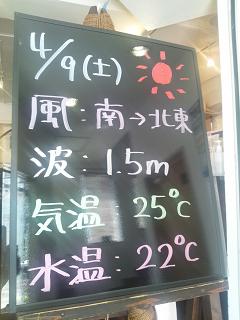 4/9(土)
風:南→北東
波:1.5m
気温:25℃
水温:22℃